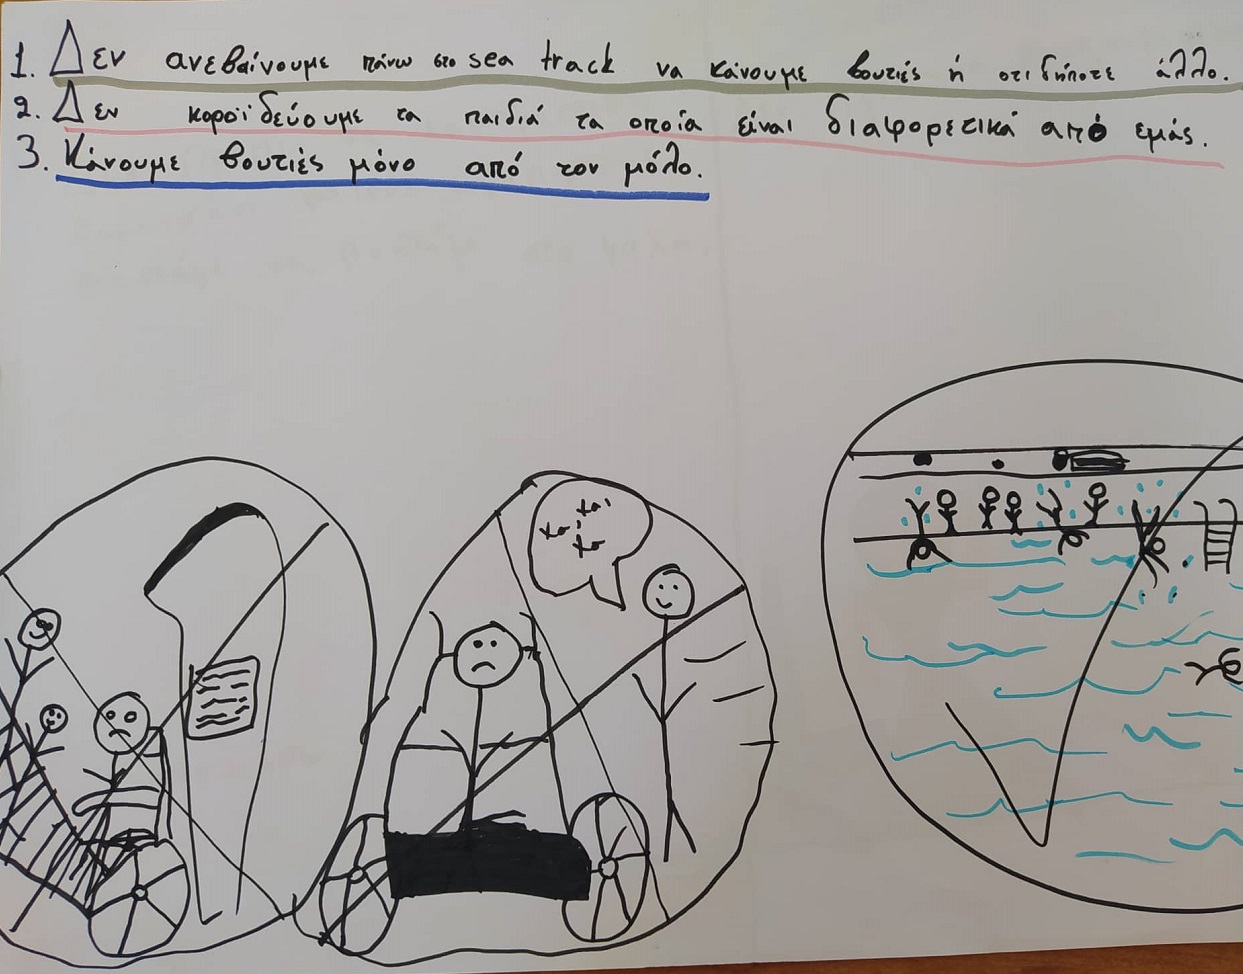 1. Δεν ανεβαίνουμε πάνω στο sea track να κάνουμε βουτιές ή οτιδήποτε άλλο.
2. Δεν κοροϊδεύουμε τα παιδιά τα οποία είναι διαφορετικά από εμάς.
3. Κάνουμε βουτιές μόνο από τον μόλο.
χα'
χα'
χα'